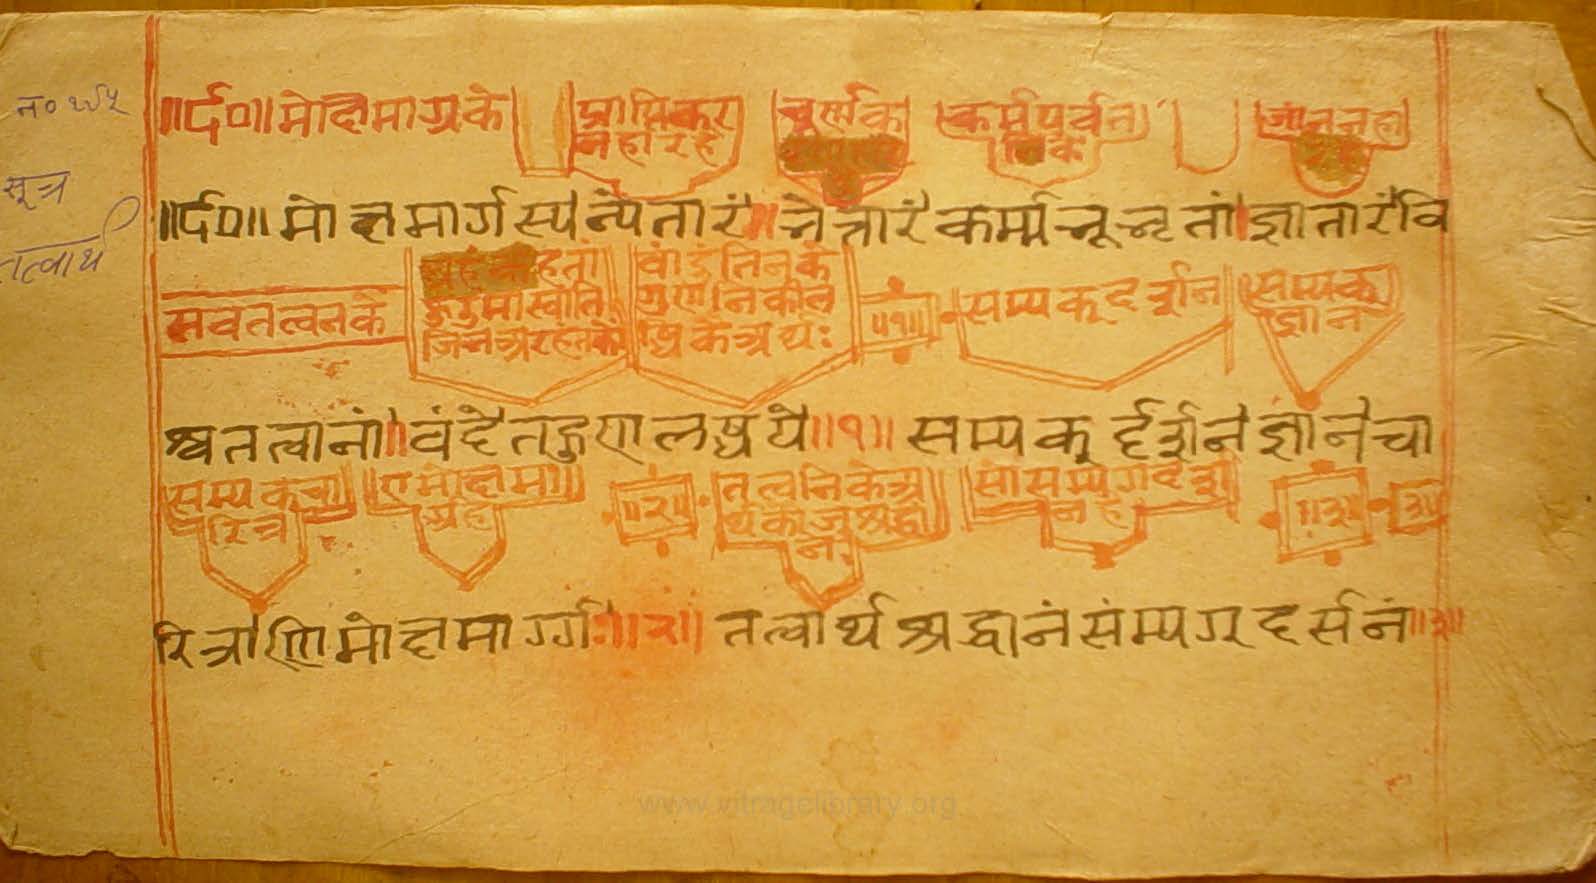 न० १४५
सूत्र
तत्वार्थ
॥र्द०॥ मोक्षमाग्रके
प्राप्तिकर
नहारहै
चूर्णक
कर्मपर्वत
निके
जांननहा
॥र्द०॥ मोक्षमार्गस्यनेतारं॥ नेत्तारंकर्म्मभूभृतां॥ज्ञातारंवि
सवतत्वनके
हतां
जिनअरहंतको
वांछंतिनके
गुणनिकील
ब्धिकेअर्थः
॥१॥
सम्यकूदर्शन
सम्यकू
ज्ञान
श्वतत्वानां॥ वंदेतद्गुणालब्धये॥१॥ सम्यकूर्द्दर्शनंज्ञानंचा
सम्यकूचा
रित्र
एमोक्षमा
ग्रहै
॥२॥
तत्वनिकेअ
र्थकाजुश्रद्धा
न
सोसम्यगदर्श
नहै
॥३॥
३
रित्राणिमोक्षमार्ग्गः॥२॥ तत्वार्थश्रद्धानंसंम्यगरदर्सनं॥३॥
www.vitragelibrary.org